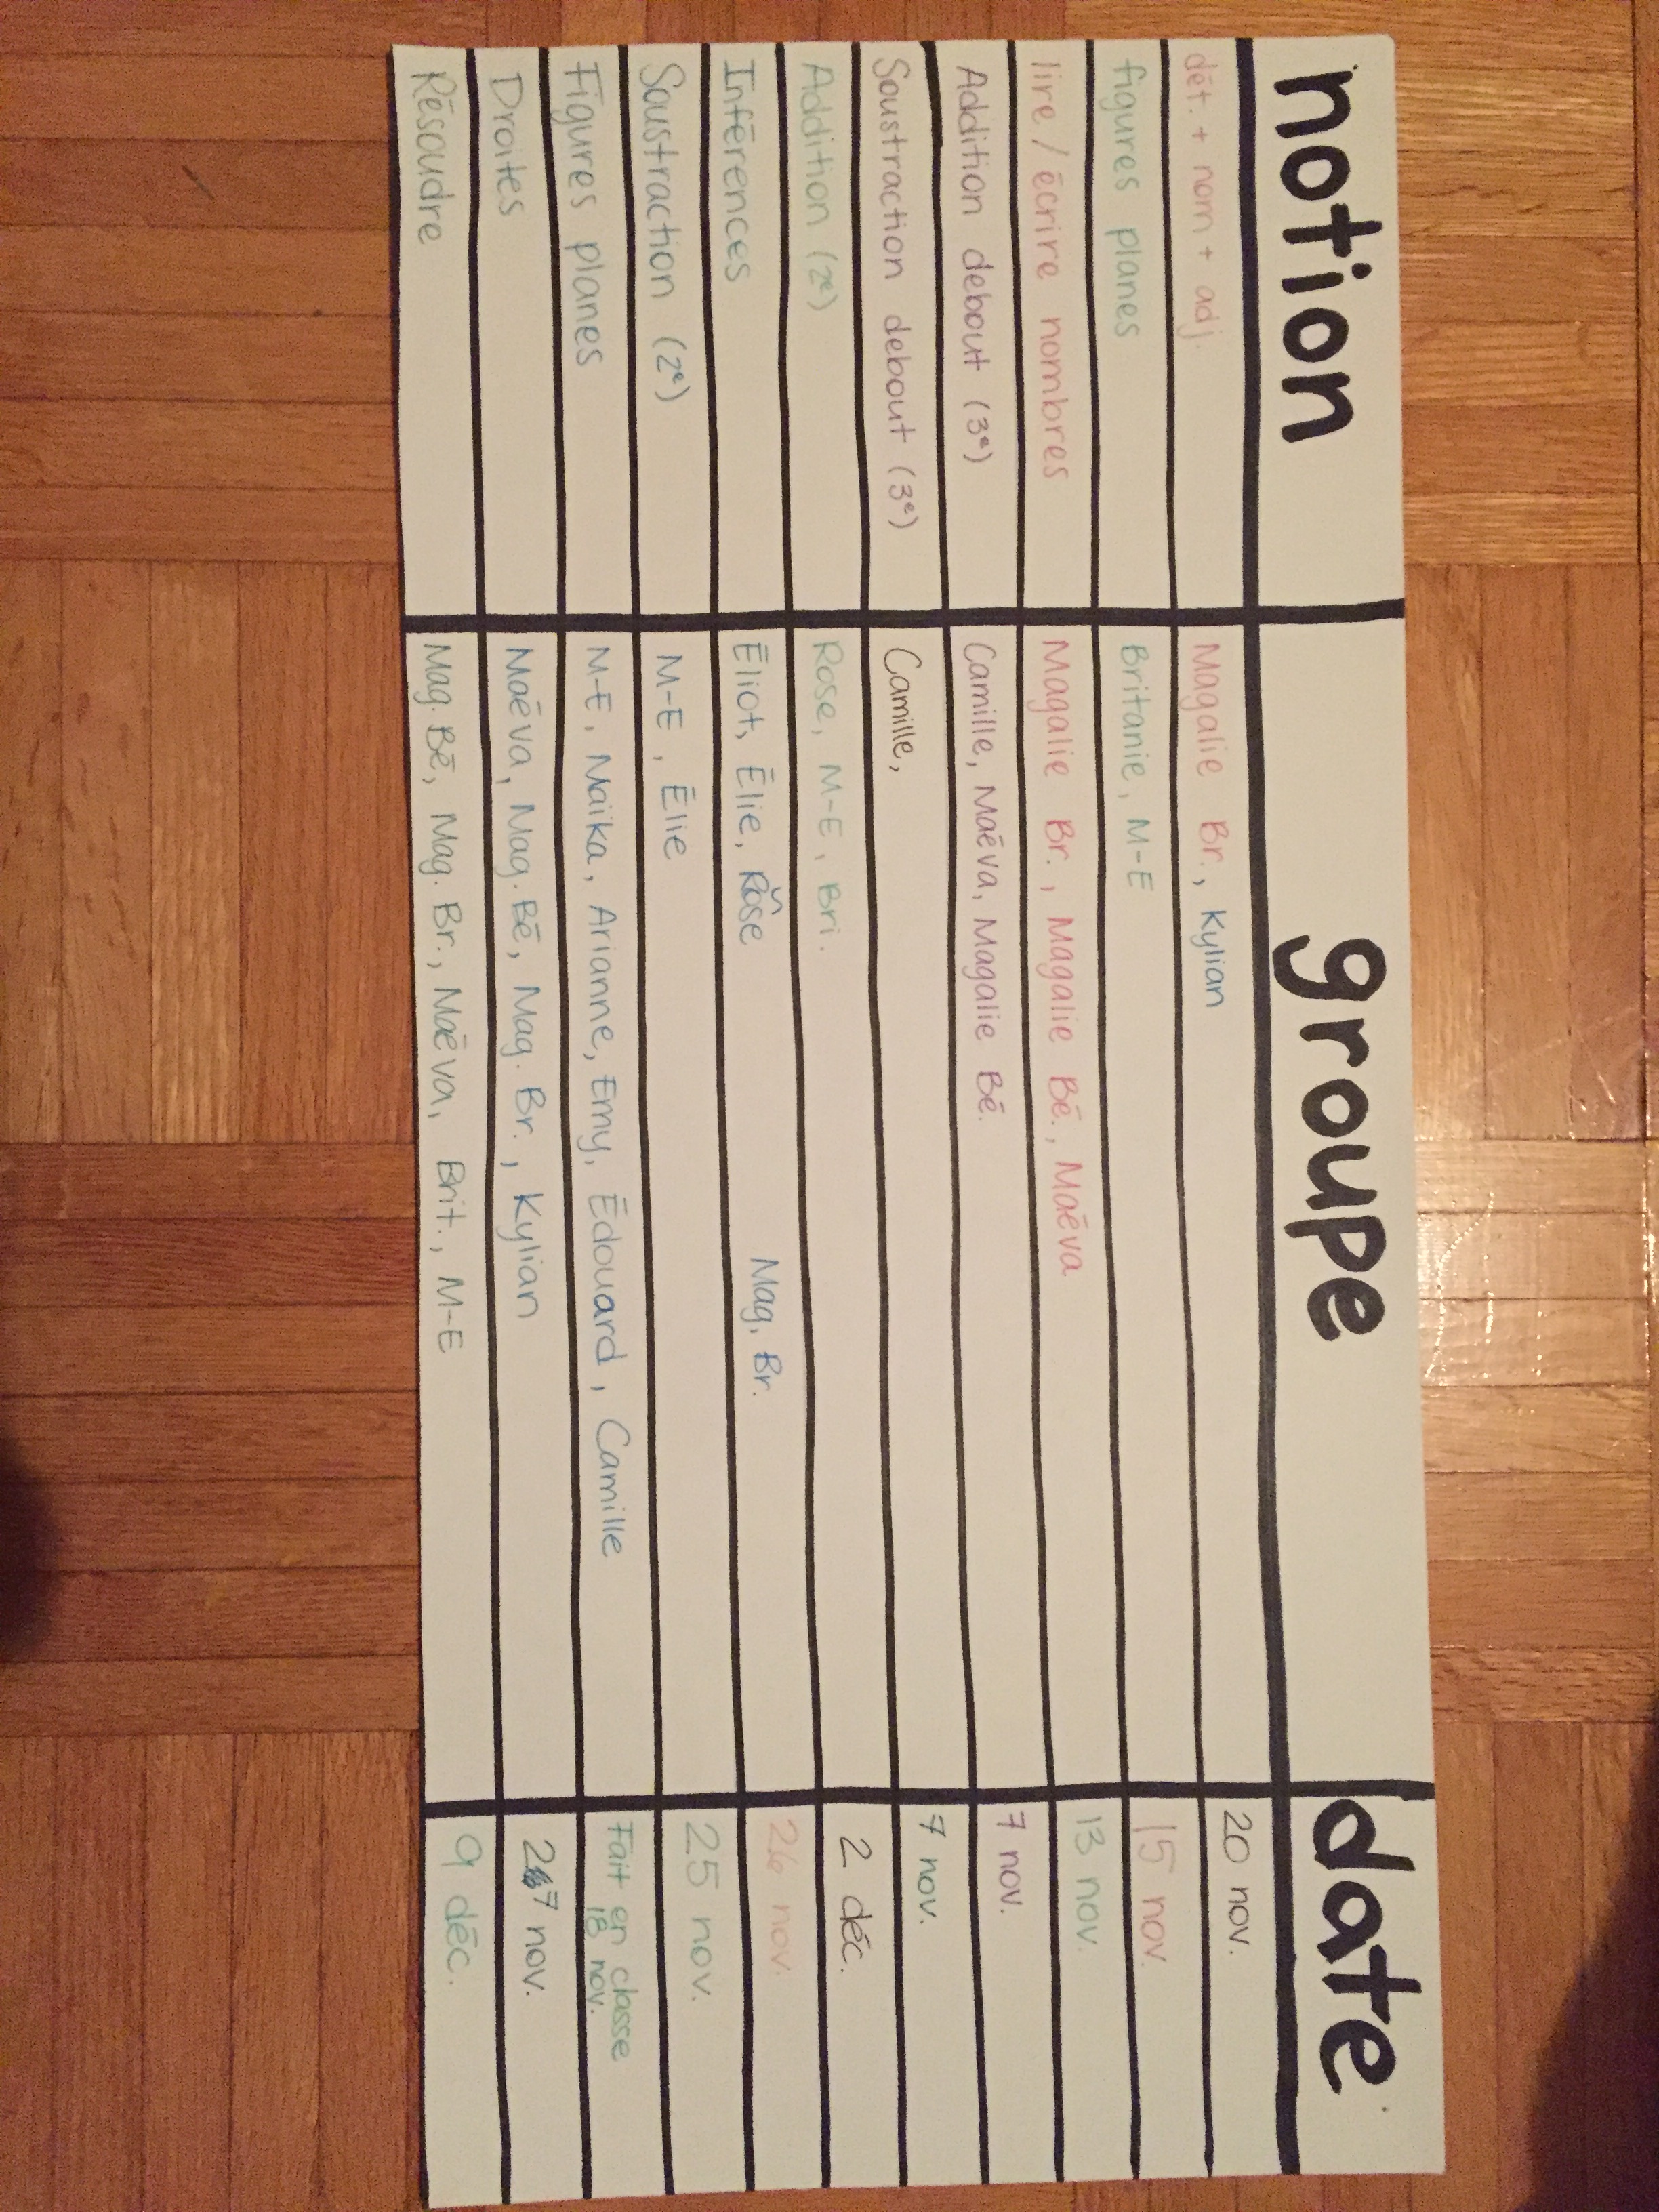 notion groupe date
dét. + nom + adj. Magalie Br., Kylian 20 nov.
figures planes Britanie, M-E 15 nov.
lire / écrire nombres Magalie Br., Magalie Bé., Maéva 13 nov.
Addition debout (3e) Camille, Maéva, Magalie Bé. 7 nov.
Soustraction debout (3e) Camille, 7 nov.
Addition (2e) Rose, M-E, Bri. 2 déc.
Inférences Éliot, Élie, Rose Mag. Br. 26 nov.
Soustraction (2e) M-E, Élie 25 nov.
Figures planes M-E, Maïka, Arianne, Emy, Édouard, Camille Fait en classe
18 nov.
Droites Maéva, Mag. Bé, Mag. Br., Kylian 27 nov.
Résoudre Mag. Bé, Mag. Br., Maéva, Brit., M-E 9 déc.